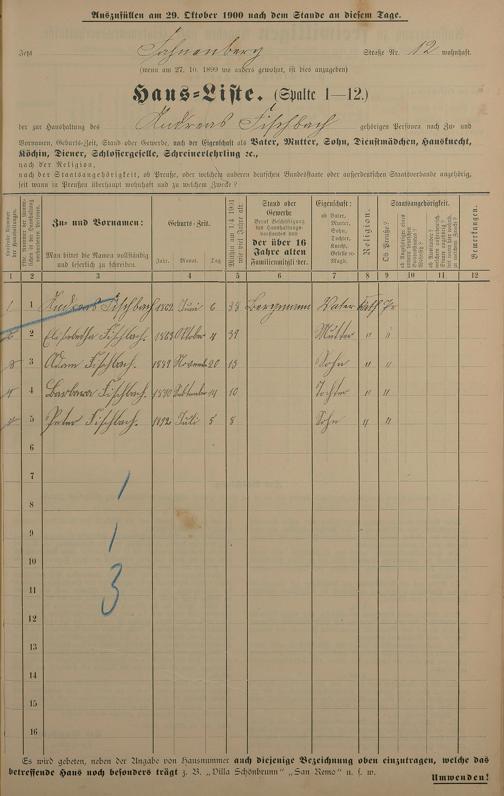 Auszufüllen am 29. Oktober 1900 nach dem Stande an diesem Tage.
Jetzt Fahnenberg Straße Nr. 12 wohnhaft.
(wenn am 27. 10. 1899 wo anders gewohnt, ist dies anzugeben)
Haus-Liste. (Spalte 1—12.)
der zur Haushaltung des Andreas Fischbach gehörigen Personen nach Zu- und
Vornamen, Geburts-Zeit, Stand oder Gewerbe, nach der Eigenschaft als Vater, Mutter, Sohn, Dienstmädchen, Hausknecht,
Köchin, Diener, Schlossergeselle, Schreinerlehrling ꝛc.,
nach der Religion,
nach der Staatsangehörigkeit, ob Preuße, oder welchem anderen deutschen Bundesstaate oder außerdeutschen Staatsverbande angehörig,
seit wann in Preußen überhaupt wohnhaft und zu welchem Zweck?
Zu- und Vornamen:
Man bittet die Namen vollständig
und leserlich zu schreiben.
Geburts-Zeit.
Jahr. Monat. Tag
Mithin am 1/4 1901
wie viel Jahre alt.
Stand oder
Gewerbe
der über 16
Jahre alten
Familienmitgl. der.
Eigenschaft:
ob Vater,
Mutter,
Sohn,
Tochter,
Knecht,
Geselle o.
Magd.
Religion.
Staatsangehörigkeit.
Ob Preuße?
Bemerkungen.
1 2 3 4 5 6 7 8 9 10 11 12
1 1 Andreas Fischbach 1862 Juni 6 38 Bergmann Vater kath Pr
2 Elisabetha Fischbach. 1863 Oktober 4 Mutter " "
3 3 Adam Fischbach. Novemb 20 13 Sohn " "
4 4 Barbara Fischbach. 1890 September 14 10 Tochter " "
5 Peter Fischbach. 1892 Juli 5 8 Sohn " "
6
7
1
8
9
1
10
11
3
12
13
14
15
16
Es wird gebeten, neben der Angabe von Hausnummer auch diejenige Bezeichnung oben einzutragen, welche das
betreffende Haus noch besonders trägt z. B. „Villa Schönbrunn" „San Remo" u. s. w.
Umwenden!